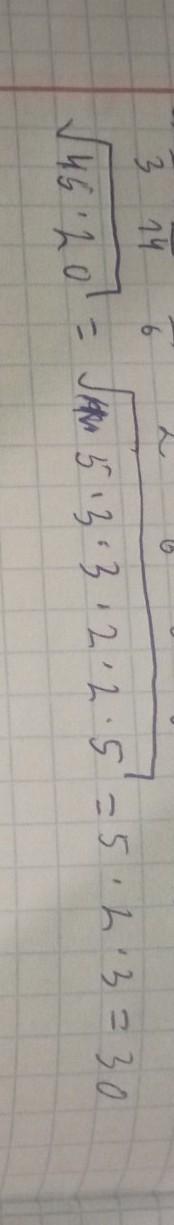 3 14 6 2
√45·20 = √5·3·3·2·2·5 = 5·2·3 = 30